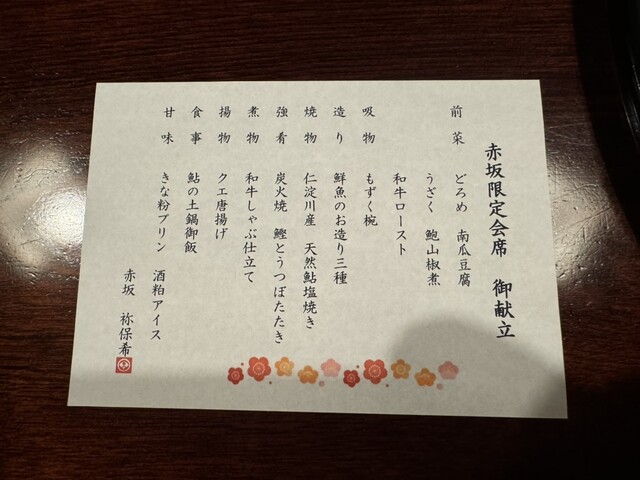 赤坂限定会席　御献立
前菜　どろめ　南瓜豆腐
うざく　鮑山椒煮
和牛ロースト
吸物　もずく椀
造り　鮮魚のお造り三種
焼物　仁淀川産　天然鮎塩焼き
強肴　炭火焼　鰹とうつぼたたき
煮物　和牛しゃぶ仕立て
揚物　クエ唐揚げ
食事　鮎の土鍋御飯
甘味　きな粉プリン　酒粕アイス
赤坂　祢保希